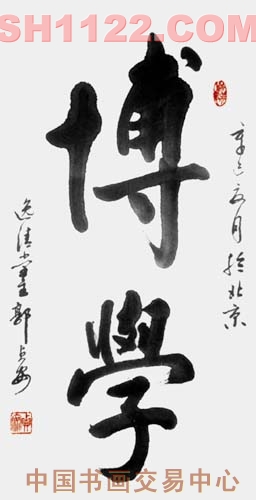 SH1122.COM
博學
辛巳夏月於北京
逸清堂主郭
中国书画交易中心